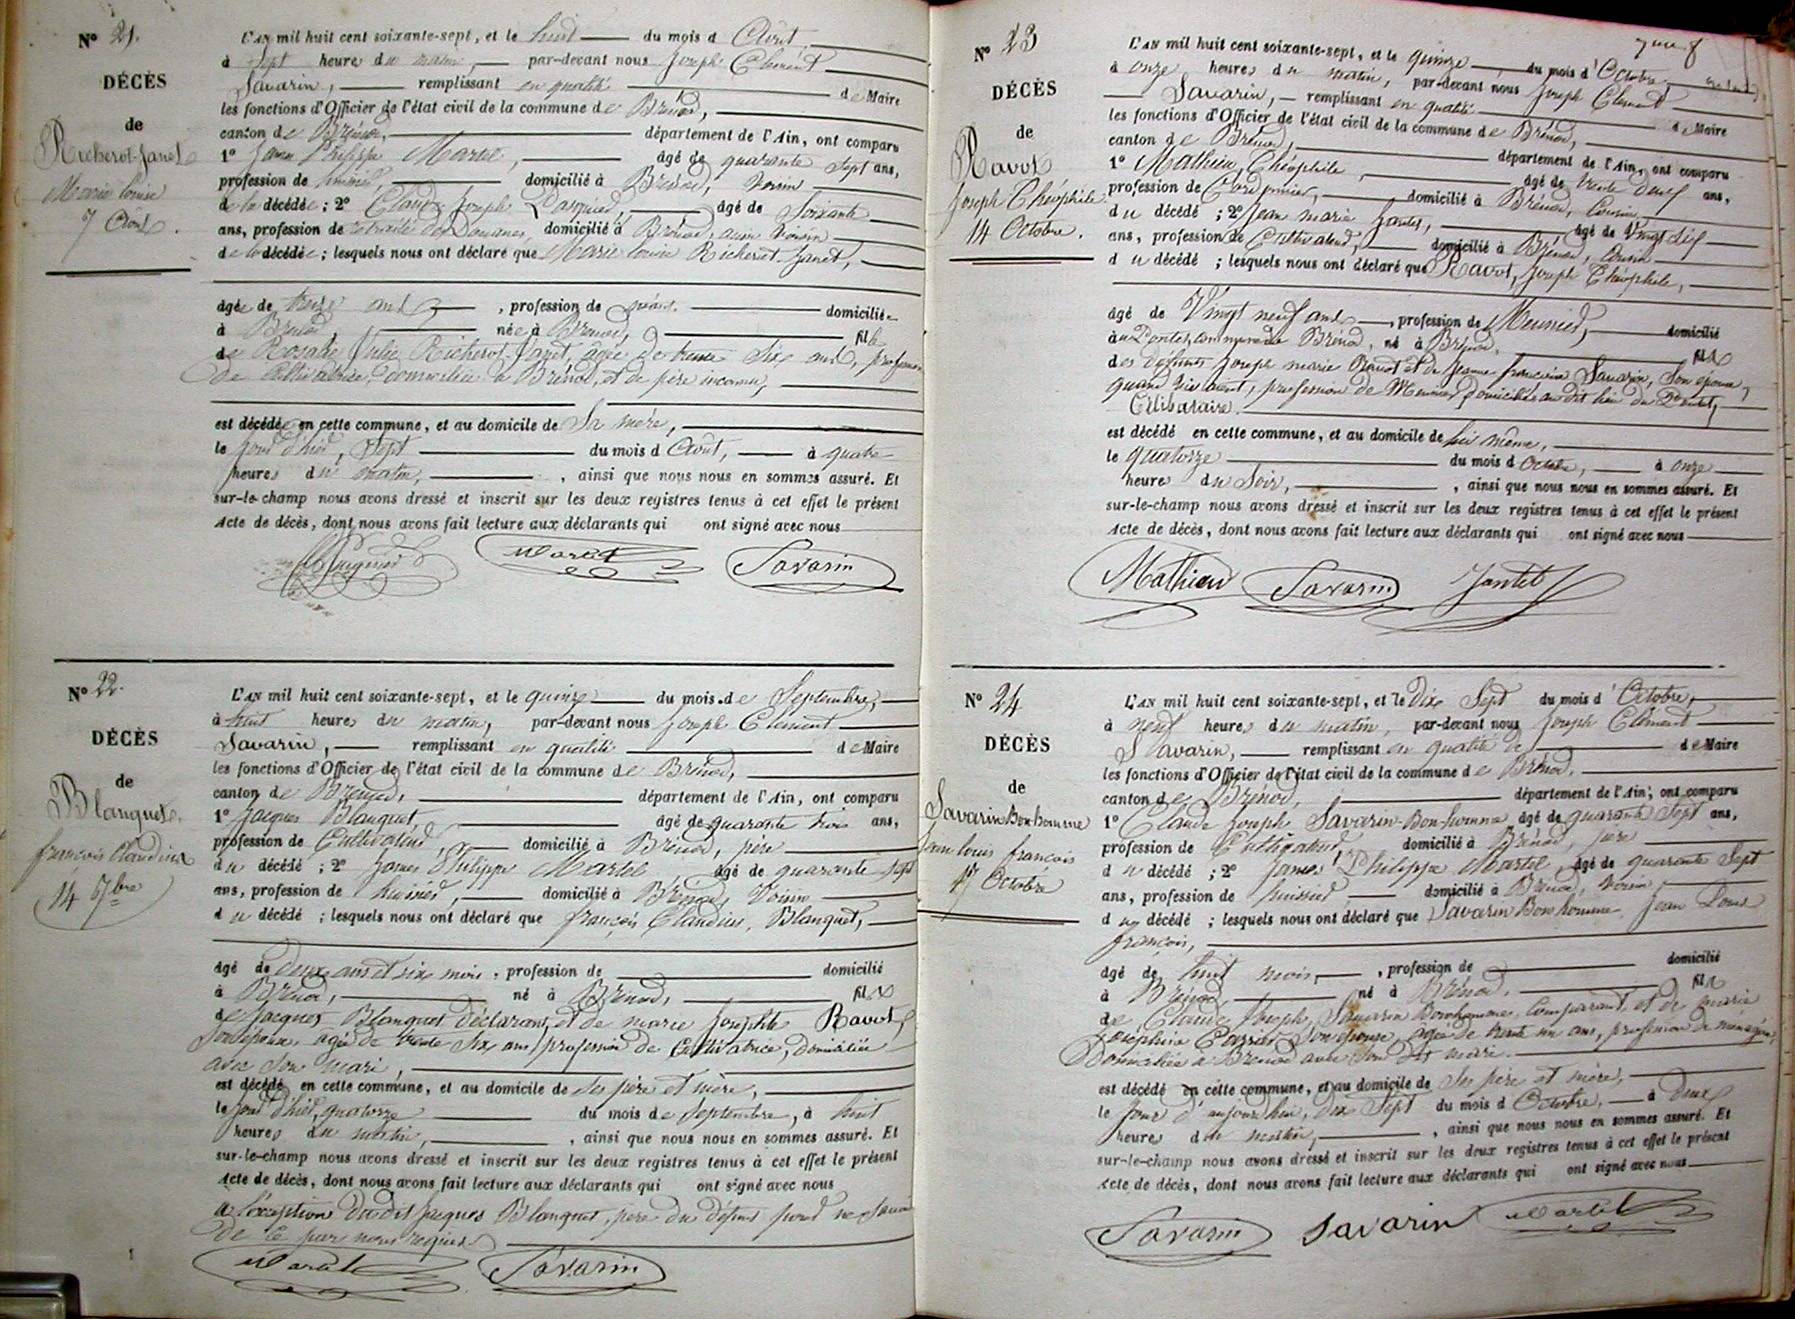 N° 21.
DÉCÈS
de
Richerot-Janet
Marie louise
7 Aout.
L'AN mil huit cent soixante-sept, et le huit du mois d Août
à sept heures du matin, par-devant nous Joseph Clément
Savarin, remplissant en qualité de Maire
les fonctions d'Officier de l'état civil de la commune de Brénod,
canton de Brénod, département de l'Ain, ont comparu
1° James Philippe Martel, âgé de quarante sept ans,
profession de huissier, domicilié à Brénod, voisin
de la décédée ; 2° Claude Joseph âgé de soixante
ans, profession de retraité des Douanes, domicilié à Brénod, aussi voisin
de la décédée ; lesquels nous ont déclaré que Marie louise Richerot Janet,
âgée de ans , profession de domiciliée
à Brénod, née à Brénod, fille
de Rosalie Julie Richerot-Janet, âgée de trente six ans, profession
de cultivatrice, domiciliée à Brénod, et de père inconnu,
est décédée en cette commune, et au domicile de Sa mère,
le jour d'hier, Sept du mois d Août, à quatre
heures du matin, , ainsi que nous nous en sommes assuré. Et
sur-le-champ nous avons dressé et inscrit sur les deux registres tenus à cet effet le présent
Acte de décès, dont nous avons fait lecture aux déclarants qui ont signé avec nous
Martel Savarin
N° 22.
DÉCÈS
de
Blanguet.
françois Claudius
14 7bre
L'AN mil huit cent soixante-sept, et le quinze du mois de Septembre,
à huit heures du matin, par-devant nous Joseph Clément
Savarin, remplissant en qualité de Maire
les fonctions d'Officier de l'état civil de la commune de Brénod,
canton de Brénod, département de l'Ain, ont comparu
1° Jacques Blanguet, âgé de quarante trois ans,
profession de Cultivateur, domicilié à Brénod, père
du décédé ; 2° James Philippe Martel âgé de quarante sept
ans, profession de huissier, domicilié à Brénod, Voisin
du décédé ; lesquels nous ont déclaré que françois Claudius, Blanguet,
âgé de deux ans et six mois , profession de domicilié
à Brénod, né à Brénod, fils
de Jacques Blanguet déclarant, et de marie Josephte Ravot,
Son épouse, âgée de trente six ans, profession de Cultivatrice, domiciliée
avec Son mari,
est décédé en cette commune, et au domicile de Ses père et mère,
le jour d'hier, quatorze du mois de Septembre, à huit
heures du matin, , ainsi que nous nous en sommes assuré. Et
sur-le-champ nous avons dressé et inscrit sur les deux registres tenus à cet effet le présent
Acte de décès, dont nous avons fait lecture aux déclarants qui ont signé avec nous
à l'exception dudit Jacques Blanguet, père du défunt pour ne savoir
de ce par nous requis
Martel Savarin
N° 23
DÉCÈS
de
Ravot
Joseph Théophile
14 Octobre.
L'AN mil huit cent soixante-sept, et le quinze du mois d' Octobre
à onze heures du matin, par-devant nous Joseph Clément
Savarin, remplissant en qualité de Maire
les fonctions d'Officier de l'état civil de la commune de Brénod,
canton de Brénod, département de l'Ain, ont comparu
1° Mathieu, Théophile, âgé de trente deux ans,
profession de Cordonnier, domicilié à Brénod, Cousin
du décédé ; 2° Jean marie Jantet, âgé de Vingt six
ans, profession de Cultivateur, domicilié à Brénod, Cousin
du décédé ; lesquels nous ont déclaré que Ravot, Joseph Théophile,
âgé de Vingt neuf ans , profession de Meunier, domicilié
au Pontet, commune de Brénod, né à Brénod, fils
des défunts Joseph marie Ravot et de Jeanne françoise Savarin, Son épouse,
quand vivaient, profession de Meunier, domiciliés au dit lieu du Pontet,
Célibataire.
est décédé en cette commune, et au domicile de lui même,
le quatorze du mois d Octobre, à onze
heures du Soir, , ainsi que nous nous en sommes assuré. Et
sur-le-champ nous avons dressé et inscrit sur les deux registres tenus à cet effet le présent
Acte de décès, dont nous avons fait lecture aux déclarants qui ont signé avec nous
Mathieu Savarin Jantet
N° 24
DÉCÈS
de
Savarin Bonhomme
Jean louis françois
17 Octobre
L'AN mil huit cent soixante-sept, et le Dix Sept du mois d' Octobre,
à neuf heures du matin, par-devant nous Joseph Clément
Savarin, remplissant en qualité de de Maire
les fonctions d'Officier de l'état civil de la commune de Brénod,
canton de Brénod, département de l'Ain, ont comparu
1° Claude Joseph Savarin-Bonhomme âgé de quarante Sept ans,
profession de Cultivateur, domicilié à Brénod, père
du décédé ; 2° James Philippe Martel, âgé de quarante Sept
ans, profession de huissier, domicilié à Brénod, voisin
du décédé ; lesquels nous ont déclaré que Savarin Bonhomme, Jean Louis
françois,
âgé de huit mois, , profession de domicilié
à Brénod, né à Brénod, fils
de Claude Joseph, Savarin Bonhomme, Comparant, et de marie
Josephine Son épouse, âgée de trente un ans, profession de ménagère,
Domiciliée à Brénod avec Son dit mari.
est décédé en cette commune, et au domicile de Ses père et mère,
le Jour d'aujourd'hui, dix Sept du mois d Octobre, à deux
heures du matin, , ainsi que nous nous en sommes assuré. Et
sur-le-champ nous avons dressé et inscrit sur les deux registres tenus à cet effet le présent
Acte de décès, dont nous avons fait lecture aux déclarants qui ont signé avec nous
Savarin Savarin Martel